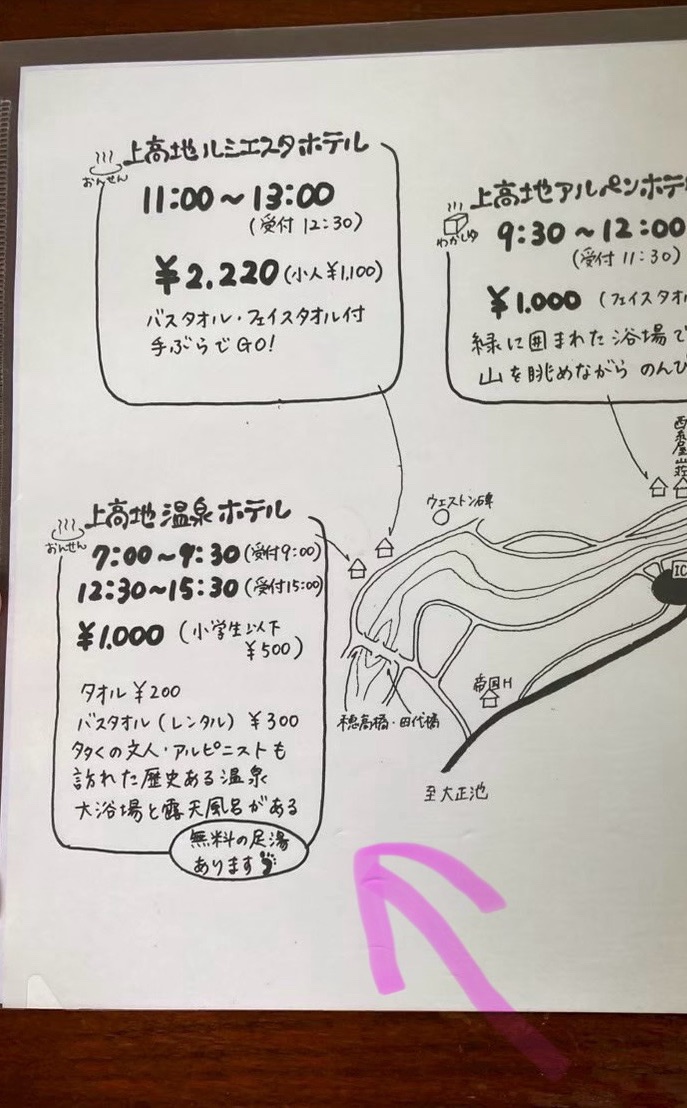 上高地ルミエスタホテル
おんせん
11:00～13:00
(受付 12:30)
¥2.220(小人¥1,100)
バスタオル・フェイスタオル付
手ぶらでGO!
上高地アルペンホテ
わかしゆ
9:30～12:00
(受付11:30)
¥1.000 (フェイスタオ
緑に囲まれた浴場で
山を眺めながら のんび
西糸屋山荘
ウェストン碑
上高地温泉ホテル
おんせん
7:00～9:30(受付9:00)
12:30～15:30(受付15:00)
¥1.000 (小学生以下
¥500)
タオル¥200
バスタオル(レンタル) ¥300
多くの文人・アルピニストも
訪れた歴史ある温泉
大浴場と露天風呂がある
無料の足湯
あります
IC
帝国H
穂高橋・田代橋
至大正池